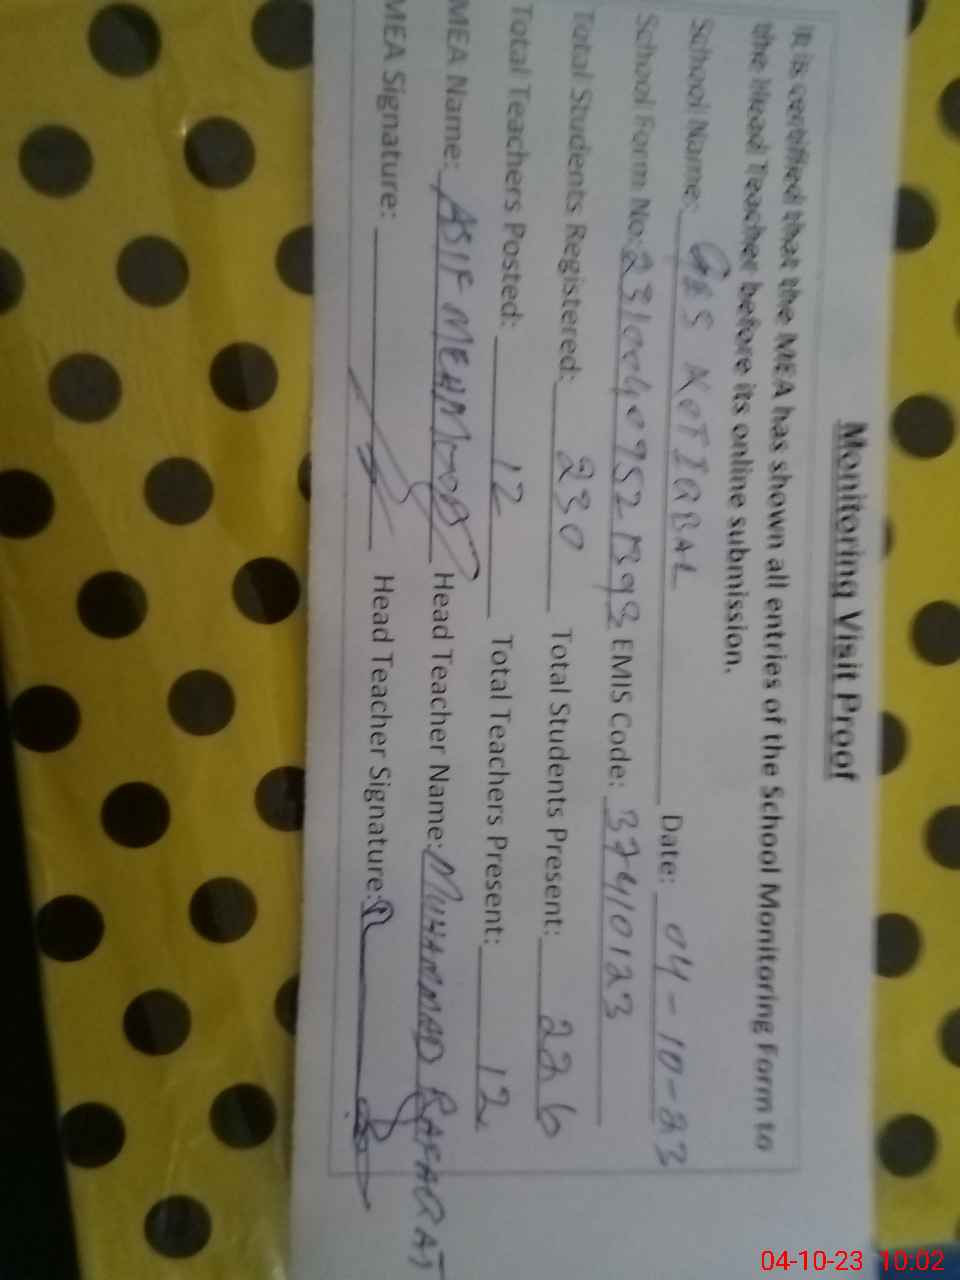 Monitoring Visit Proof
It is certified that the MEA has shown all entries of the School Monitoring Form to
the Head Teacher before its online submission.
School Name: GES KOT IQBAL Date: 04-10-23
School Form No: EMIS Code: 37410123
Total Students Registered: 230 Total Students Present: 226
Total Teachers Posted: 12 Total Teachers Present: 12
MEA Name: ASIF MEHMOOD Head Teacher Name: MUHAMMAD RAFAQAT
MEA Signature: Head Teacher Signature:
04-10-23 10:02